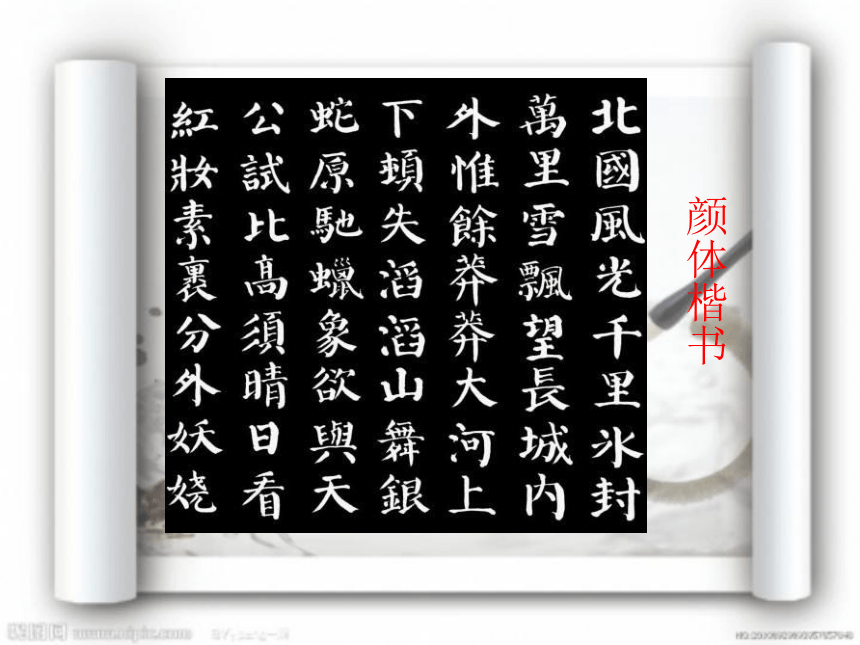 北國風光千里氷封
萬里雪飄望長城内
外惟餘莽莽大河上
下頓失滔滔山舞銀
蛇原馳蠟象欲與天
公試比高須晴日看
紅妝素裹分外妖娆
颜体楷书
昵图网 www.nipic.com